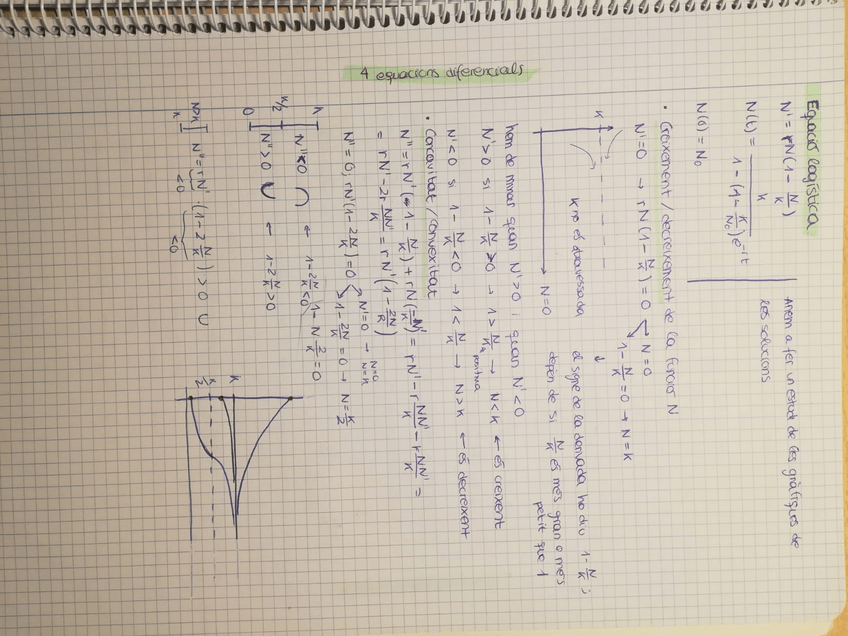 4 equacions diferencials
Equació logística
N' = rN(1 - N/K)
N(t) = K / (1 - (1 - K/N₀)e^-rt)
N(0) = N₀
anem a fer un estudi de les gràfiques de
les solucions
• Creixement / decreixement de la funció N
N' = 0 → rN(1 - N/K) = 0
N = 0
1 - N/K = 0 → N = K
K
K no és atravessada
N = 0
el signe de la derivada ho diu 1 - N/K ;
depèn de si N/K és més gran o més
petit que 1
hem de mirar quan N' > 0 i quan N' < 0
N' > 0 si 1 - N/K > 0 → 1 > N/K → N < K ← és creixent
positiva
N' < 0 si 1 - N/K < 0 → 1 < N/K → N > K ← és decreixent
• Concavitat / convexitat
N'' = rN'(1 - N/K) + rN(-N'/K) = rN' - r NN'/K - r NN'/K =
= rN' - 2r NN'/K = rN'(1 - 2N/K)
N'' = 0, rN'(1 - 2N/K) = 0
N' = 0 → N = 0 N = K
1 - 2N/K = 0 → N = K/2
K
N'' < 0 ∩ ← 1 - 2N/K < 0
1 - N 2/K = 0
K/2
N'' > 0 ∪ ← 1 - 2N/K > 0
0
N > K
K
N'' = rN' (1 - 2N/K) > 0 ∪
< 0
< 0
K
K/2